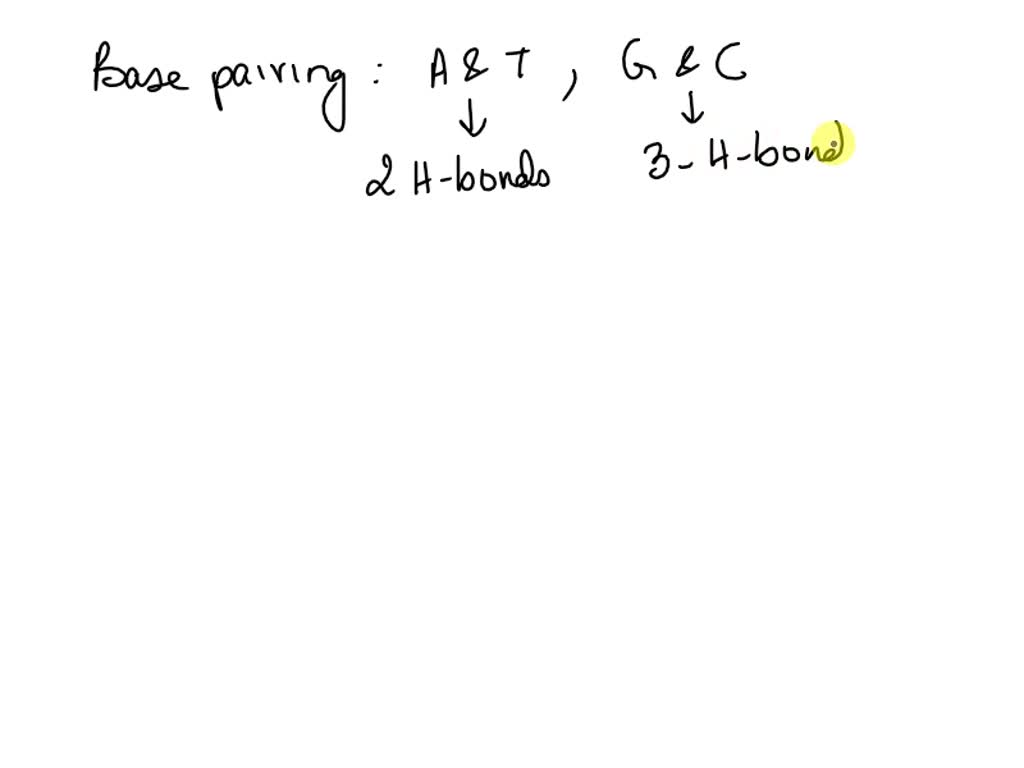 Base pairing : A & T , G & C
↓ ↓
2 H-bonds 3-H-bond